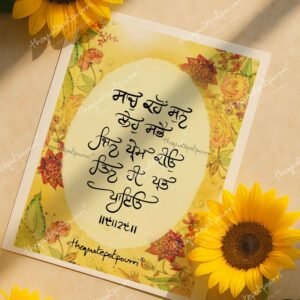 ਸਾਚੁ ਕਹੌ ਸੁਨ
ਲੇਹੁ ਸਭੈ
ਜਿਨ ਪ੍ਰੇਮ ਕੀਓ
ਤਿਨ ਹੀ ਪ੍ਰਭ
ਪਾਇਓ
thequotepotpourri